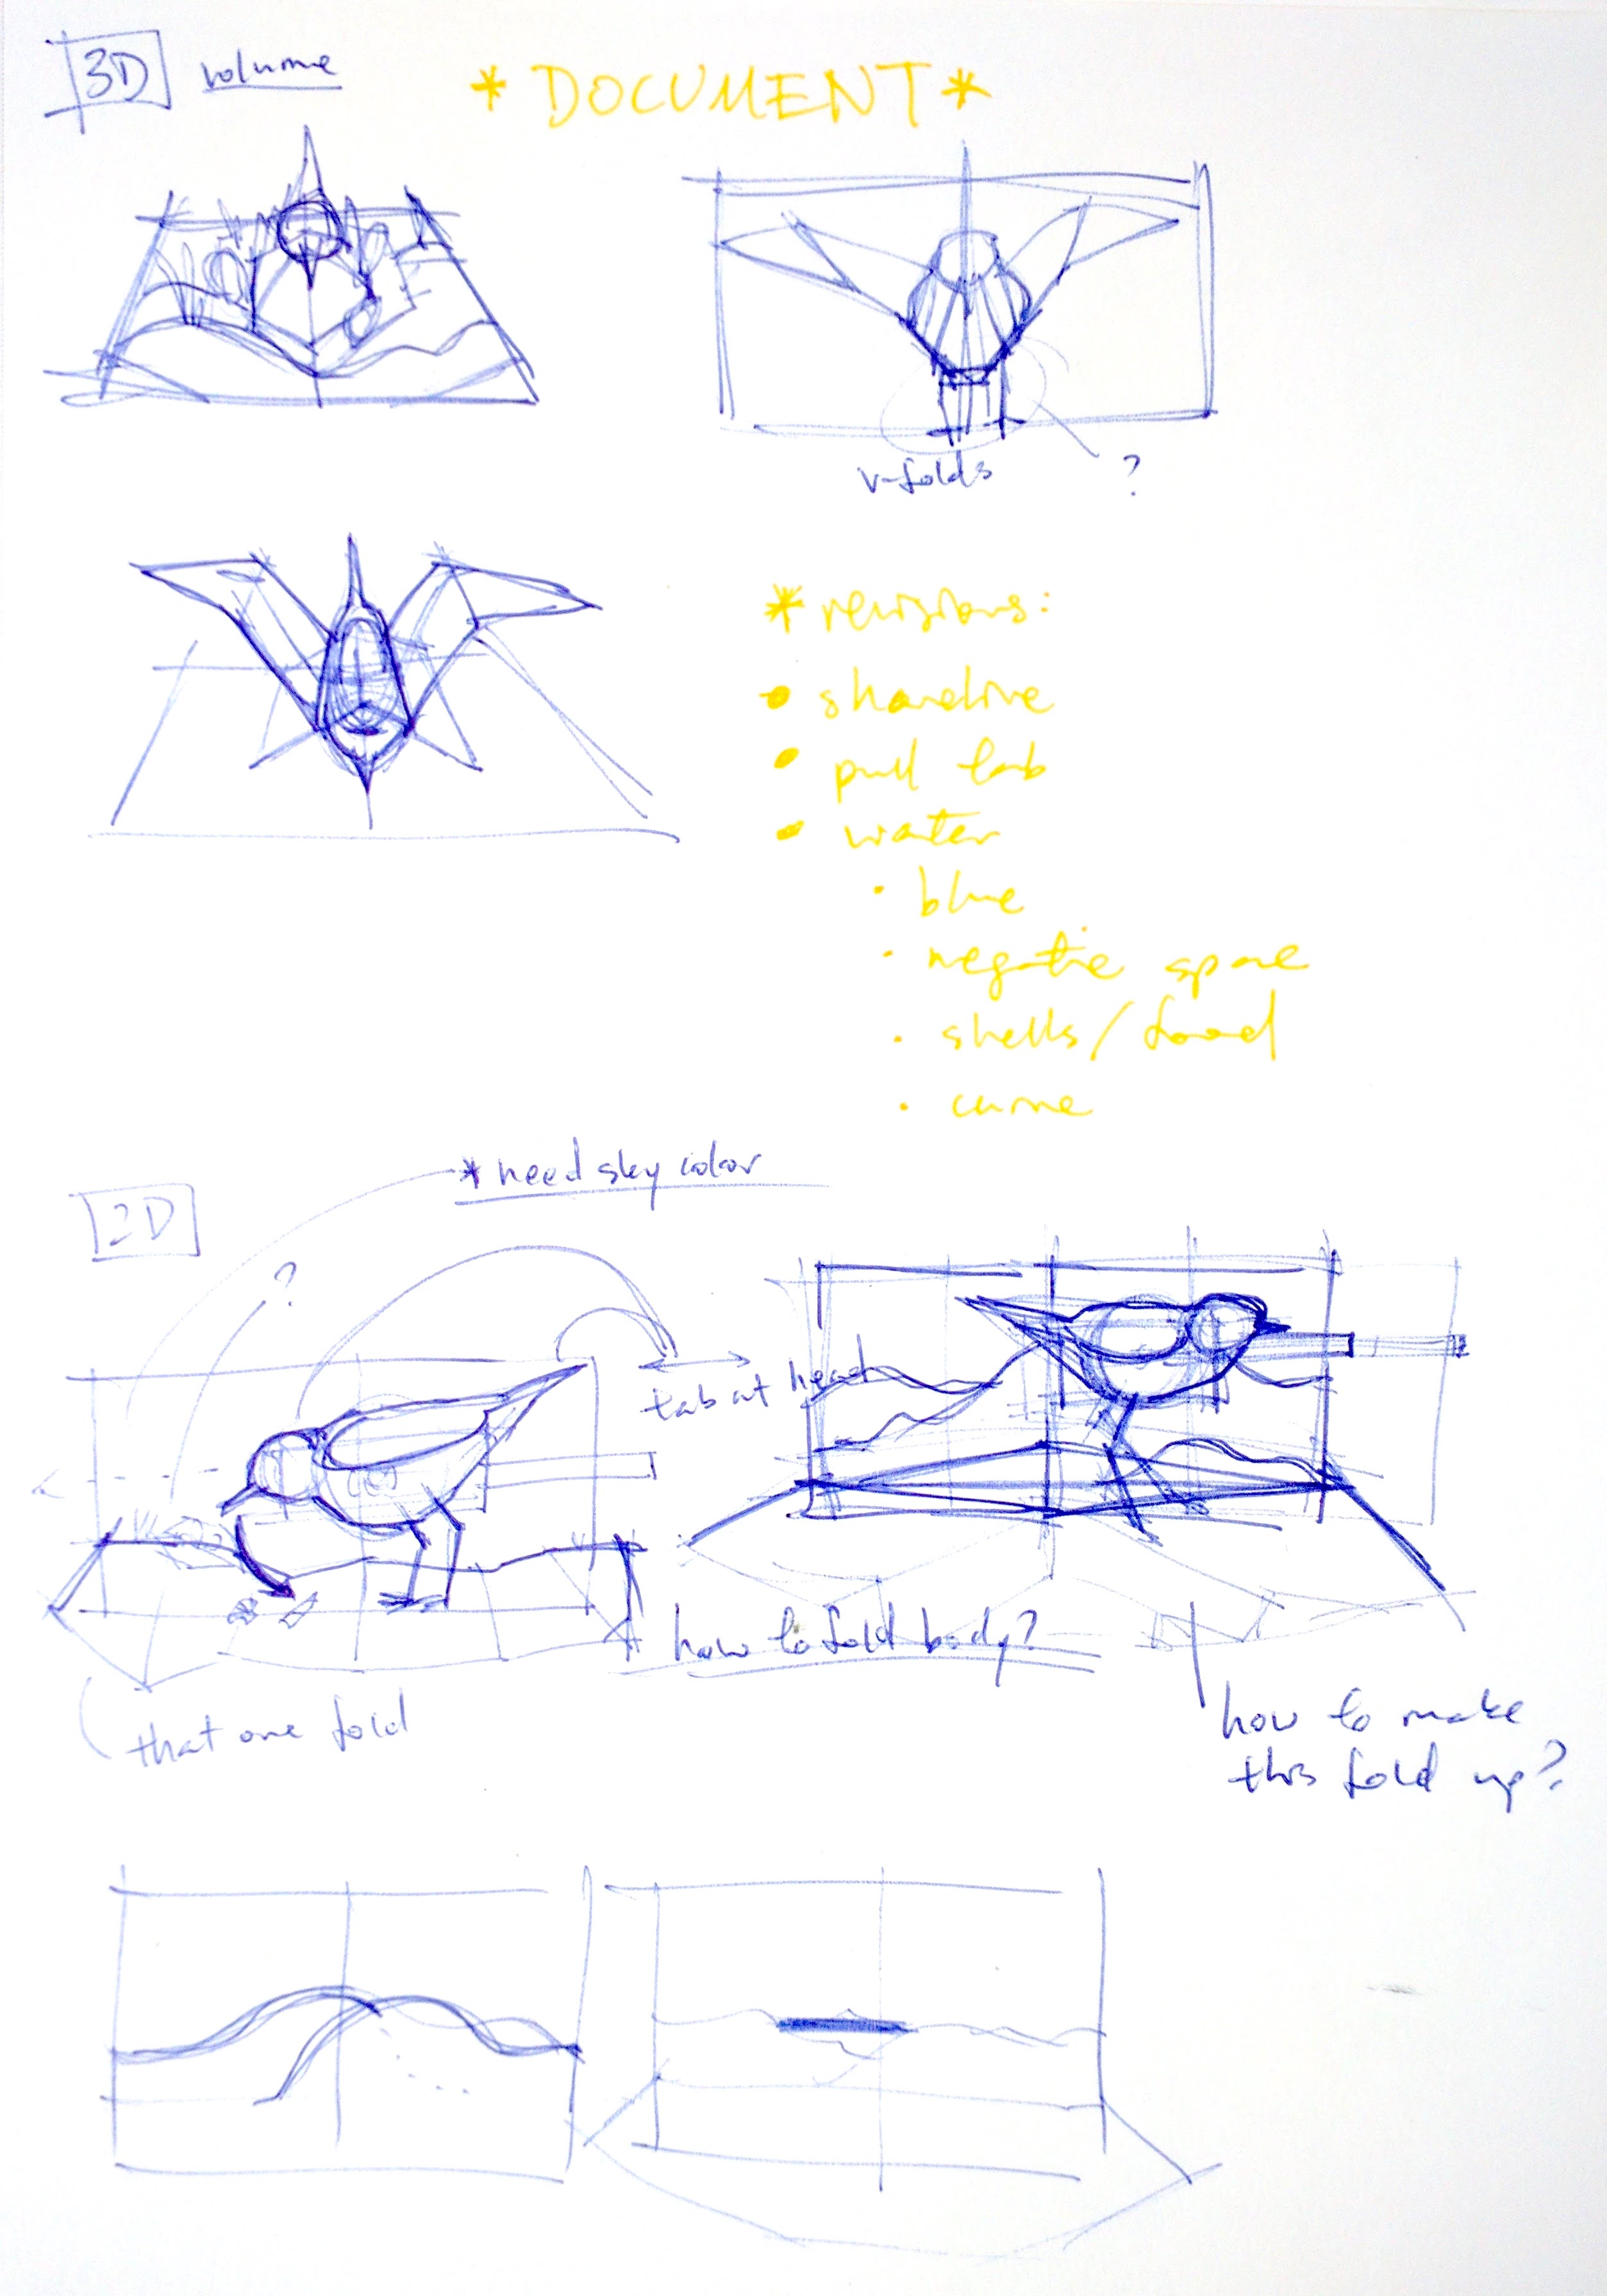 3D volume
* DOCUMENT *
v-folds
?
* revisions:
• shoreline
• pull tab
• water
• blue
• negative space
• shells/food
• curve
* need sky color
2D
?
tab at head
how to fold body?
that one fold
how to make
this fold up?